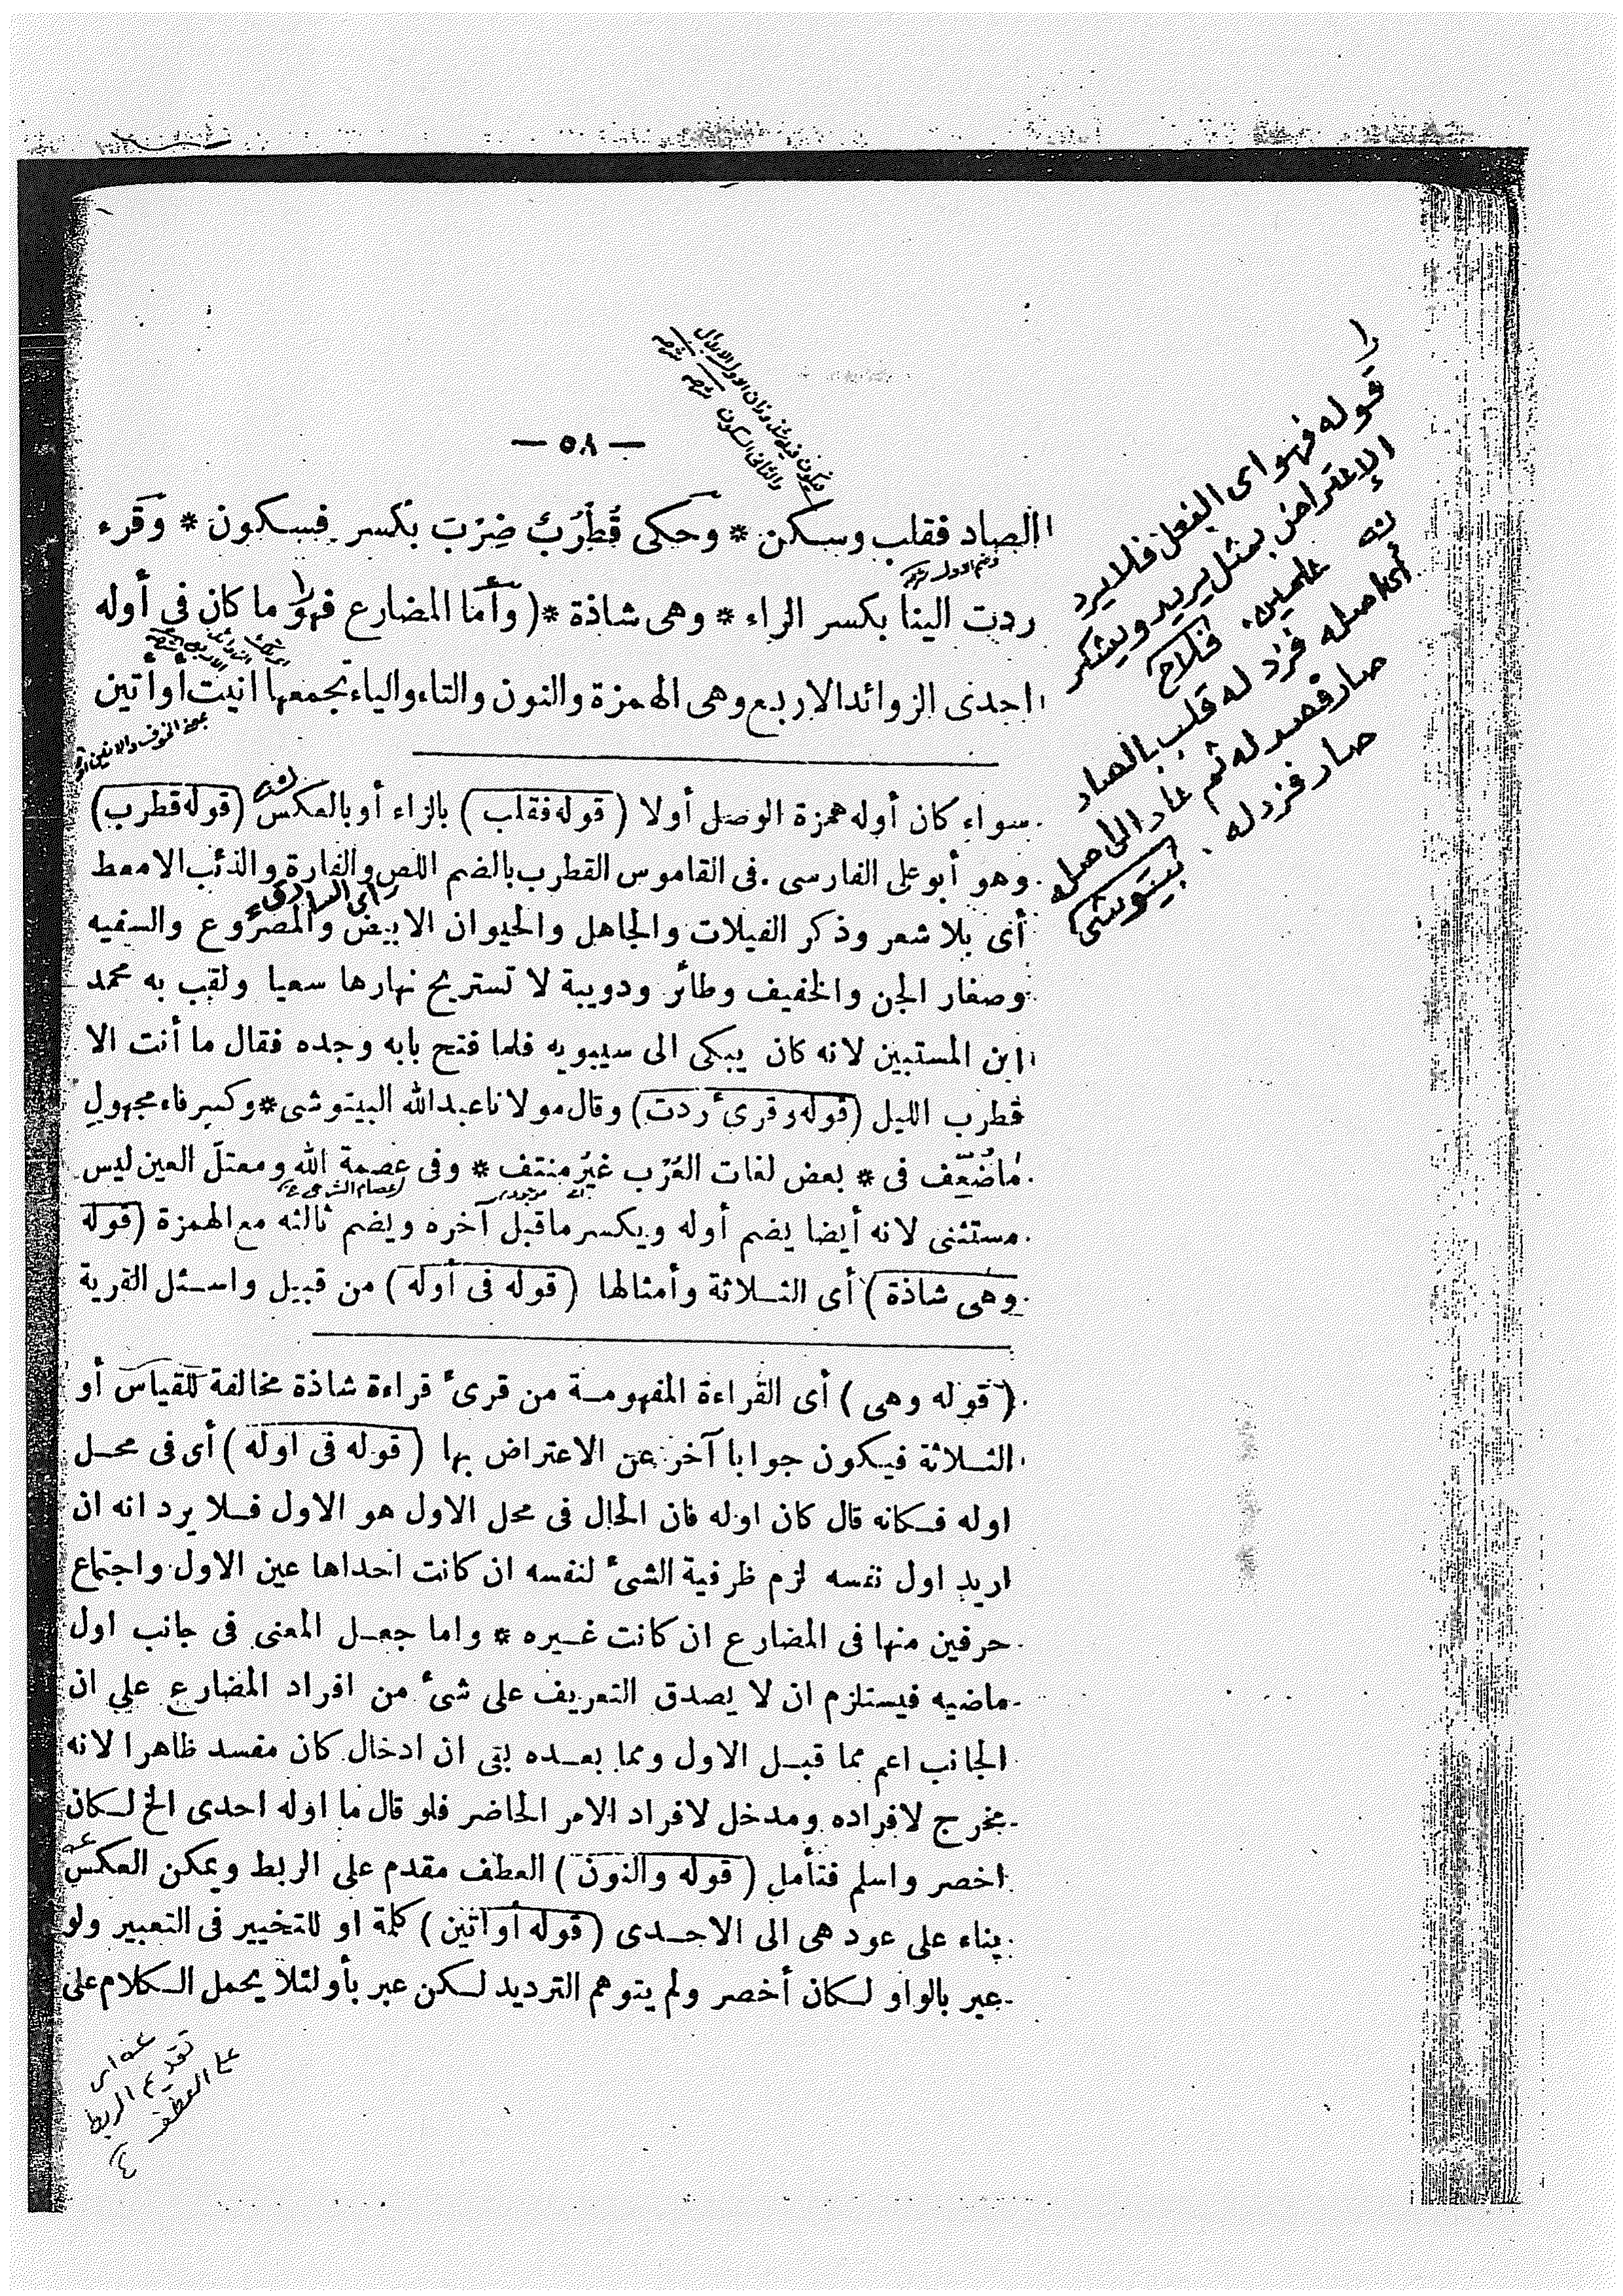 — ٥٨ —
الصاد فقلب وسكن * وحكى قُطْرُبٌ ضِرْبَ بكسر فسكون * وقرء
ردت الينا بكسر الراء * وهى شاذة *( وأما المضارع فهو ما كان فى أوله
احدى الزوائد الاربع وهى الهمزة والنون والتاء والياء تجمعها انيت أو أتين
سواء كان أوله همزة الوصل أولا ( قوله فقلب ) بالزاء أو بالعكس ( قوله قطرب )
وهو أبو على الفارسى . فى القاموس القطرب بالضم اللص والفارة والذئب الامعط
أى بلا شعر وذكر الغيلات والجاهل والحيوان الابيض والمصروع والسفيه
وصغار الجن والخفيف وطائر ودويبة لا تستريح نهارها سعيا ولقب به محمد
ابن المستبين لانه كان يبكى الى سيبويه فلما فتح بابه وجده فقال ما أنت الا
قطرب الليل ( قوله وقرئ ردت ) وقال مولانا عبدالله البيتوشى * وكسر فاء مجهول
ماضُعّف فى * بعض لغات العُرْب غيرُ منتف * وفى عصمة الله ومعتل العين ليس
مستثنى لانه أيضا يضم أوله ويكسر ماقبل آخره ويضم ثالثه مع الهمزة ( قوله
وهى شاذة ) أى الثلاثة وأمثالها ( قوله فى أوله ) من قبيل واسئل القرية
( قوله وهى ) أى القراءة المفهومة من قرئ قراءة شاذة مخالفة للقياس أو
الثلاثة فيكون جوابا آخر عن الاعتراض بها ( قوله فى اوله ) أى فى محل
اوله فكانه قال كان اوله فان الحال فى محل الاول هو الاول فلا يرد انه ان
اريد اول نفسه لزم ظرفية الشئ لنفسه ان كانت احداها عين الاول واجتماع
حرفين منها فى المضارع ان كانت غيره * واما جعل المعنى فى جانب اول
ماضيه فيستلزم ان لا يصدق التعريف على شئ من افراد المضارع على ان
الجانب اعم مما قبل الاول ومما بعده بقى ان ادخال كان مفسد ظاهرا لانه
مخرج لافراده ومدخل لافراد الامر الحاضر فلو قال ما اوله احدى الخ لكان
اخصر واسلم فتأمل ( قوله والنون ) العطف مقدم على الربط ويمكن العكس
بناء على عود هى الى الاحدى ( قوله أو اتين ) كلمة او للتخيير فى التعبير ولو
عبر بالواو لكان أخصر ولم يتوهم الترديد لكن عبر بأو لئلا يحمل الكلام على
قوله فهو اى الفعل فلا يرد
الإعتراض بمثل يزيد ويشكر
علمين. فلاح
أى اصله فزد له قلب بالصاد
صار فصد له ثم عاد الى اصله
صار فزد له . بيتوشى
تقديم الربط
على العطف